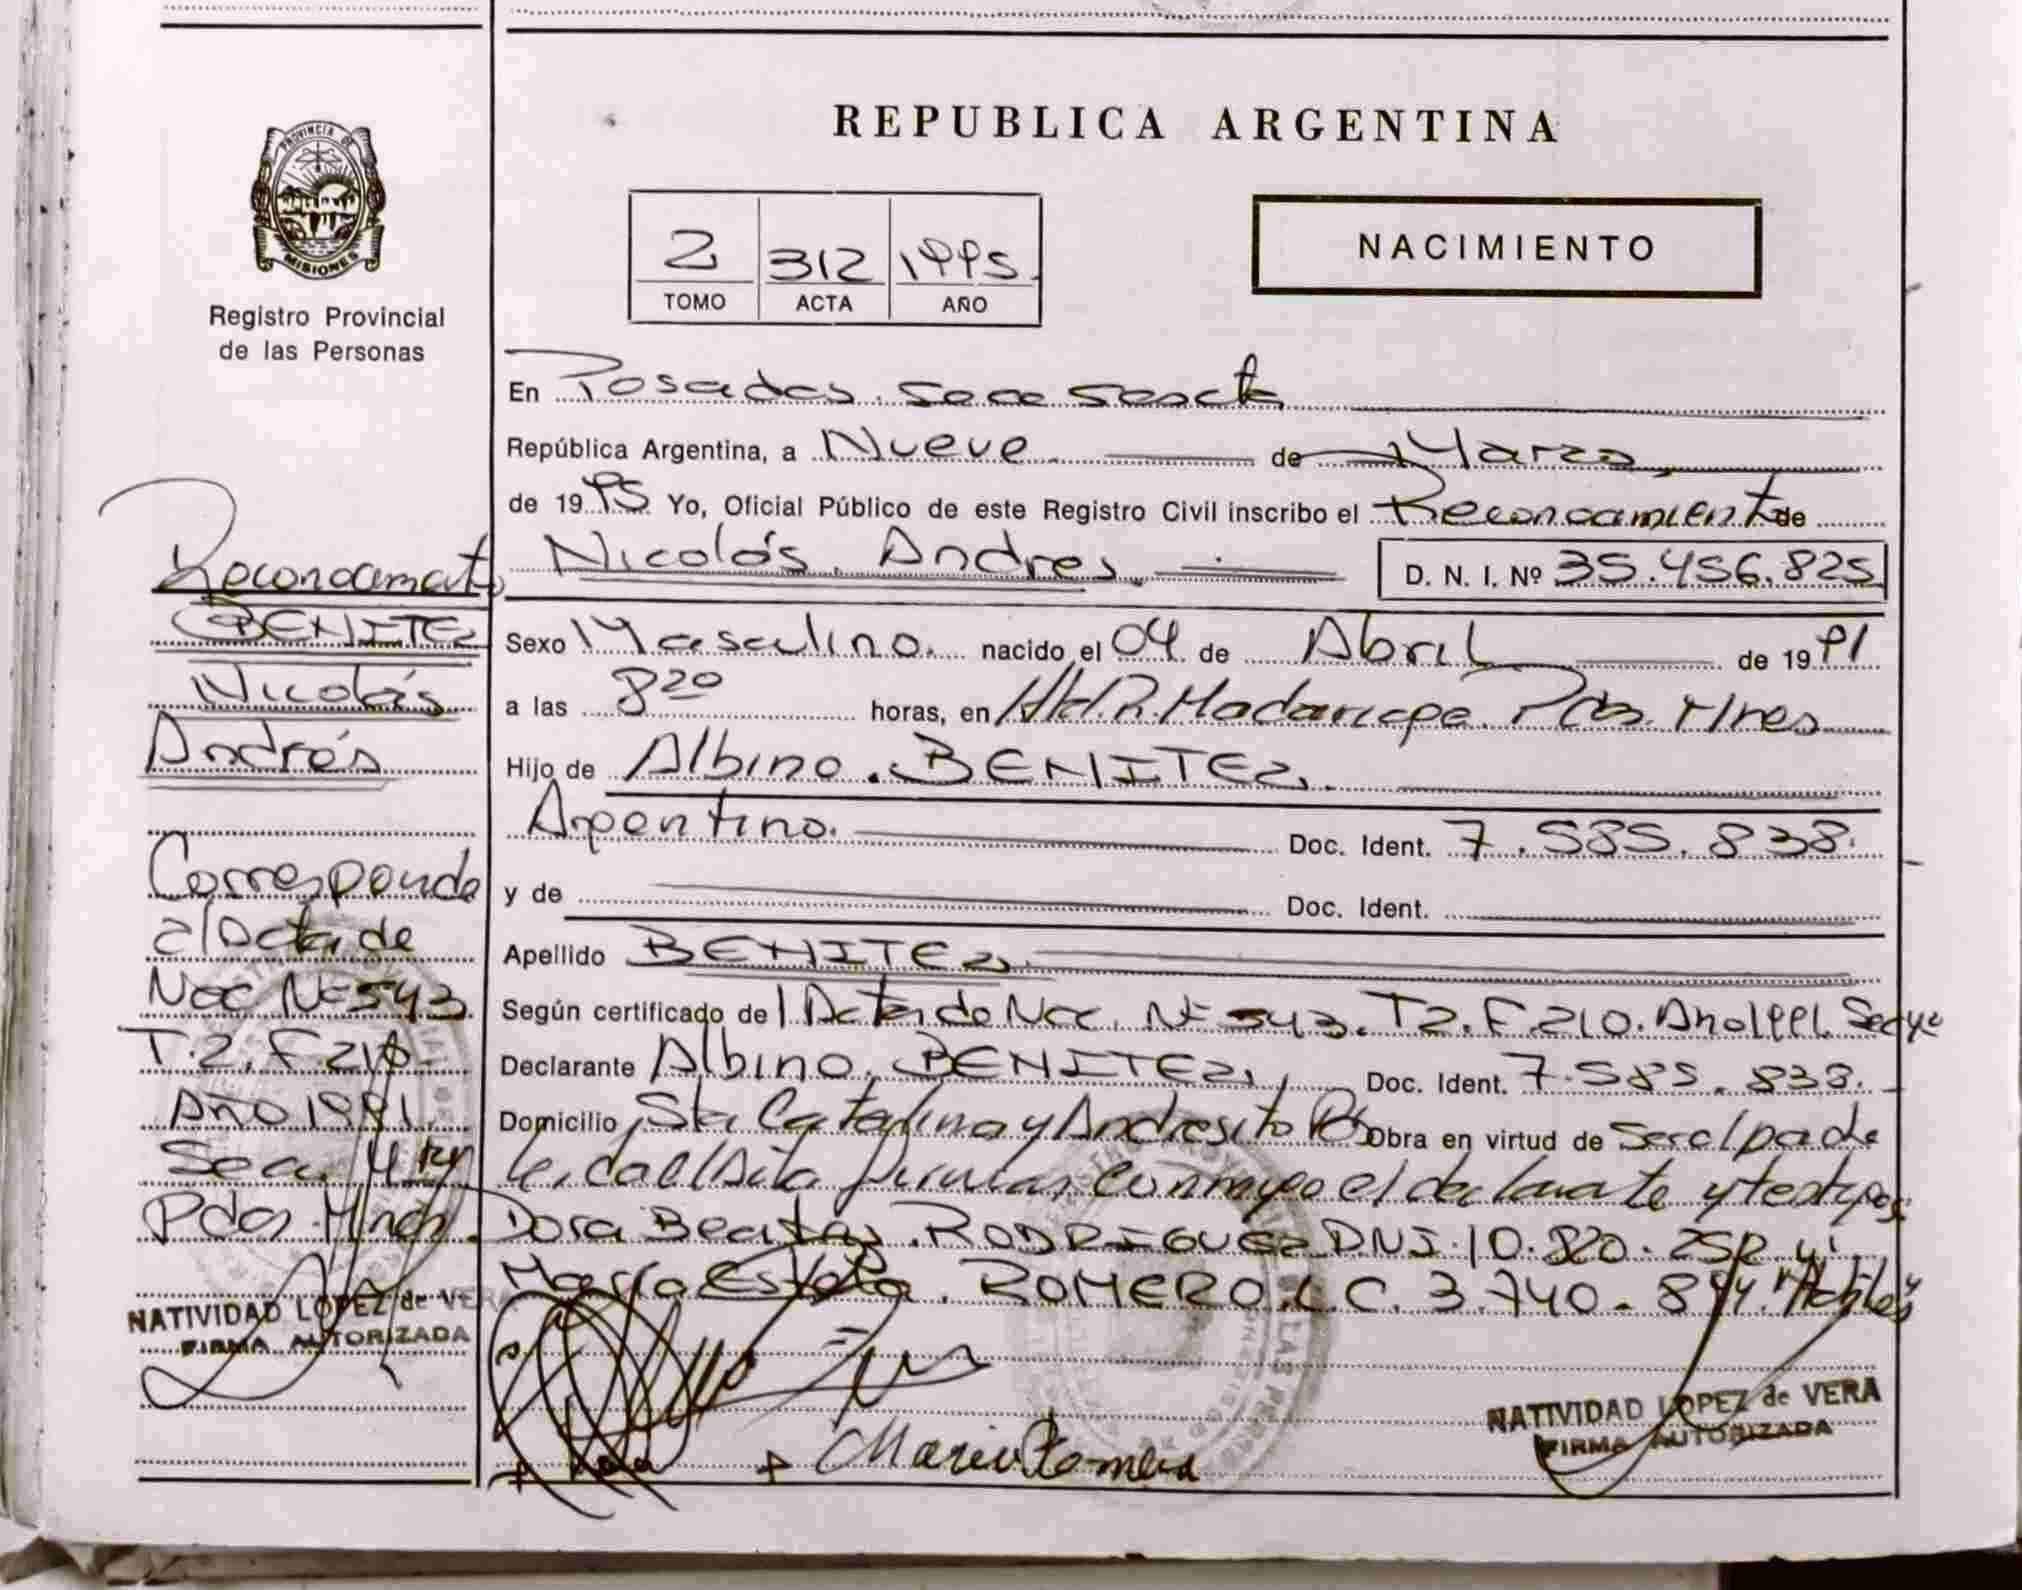 PROVINCIA DE
MISIONES
Registro Provincial
de las Personas
REPUBLICA ARGENTINA
2 312 1995
TOMO ACTA AÑO
NACIMIENTO
En Posadas
República Argentina, a Nueve de Marzo
de 1995 Yo, Oficial Público de este Registro Civil inscribo el Reconocimiento de
Nicolás Andres D. N. I. Nº 35.456.825
Sexo Masculino nacido el 04 de Abril de 1991
a las 8 20 horas, en R. Madariaga Pdas. Mnes
Hijo de Albino BENITEZ
Argentino Doc. Ident. 7.585.838
y de Doc. Ident.
Apellido BENITEZ
Según certificado de Acta de Nac. Nº 543. T2. F. 210. Año 1991. Secc 4ª
Declarante Albino BENITEZ Doc. Ident. 7.585.838
Domicilio Sta Catalina y Andresito Obra en virtud de
firman conmigo el declarante y testigos
Dora Beatriz RODRIGUEZ DNI. 10.820.252 y
María Estela ROMERO L.C. 3.740.844
Maria Romero
NATIVIDAD LOPEZ de VERA
FIRMA AUTORIZADA
Reconocimiento
BENITEZ
Nicolás
Andrés
Corresponde
a/Acta de
Nac Nº 543
T.2. F. 210
Año 1991
Secc. 4ta
Pdas. Mnes.
NATIVIDAD LOPEZ de VERA
FIRMA AUTORIZADA